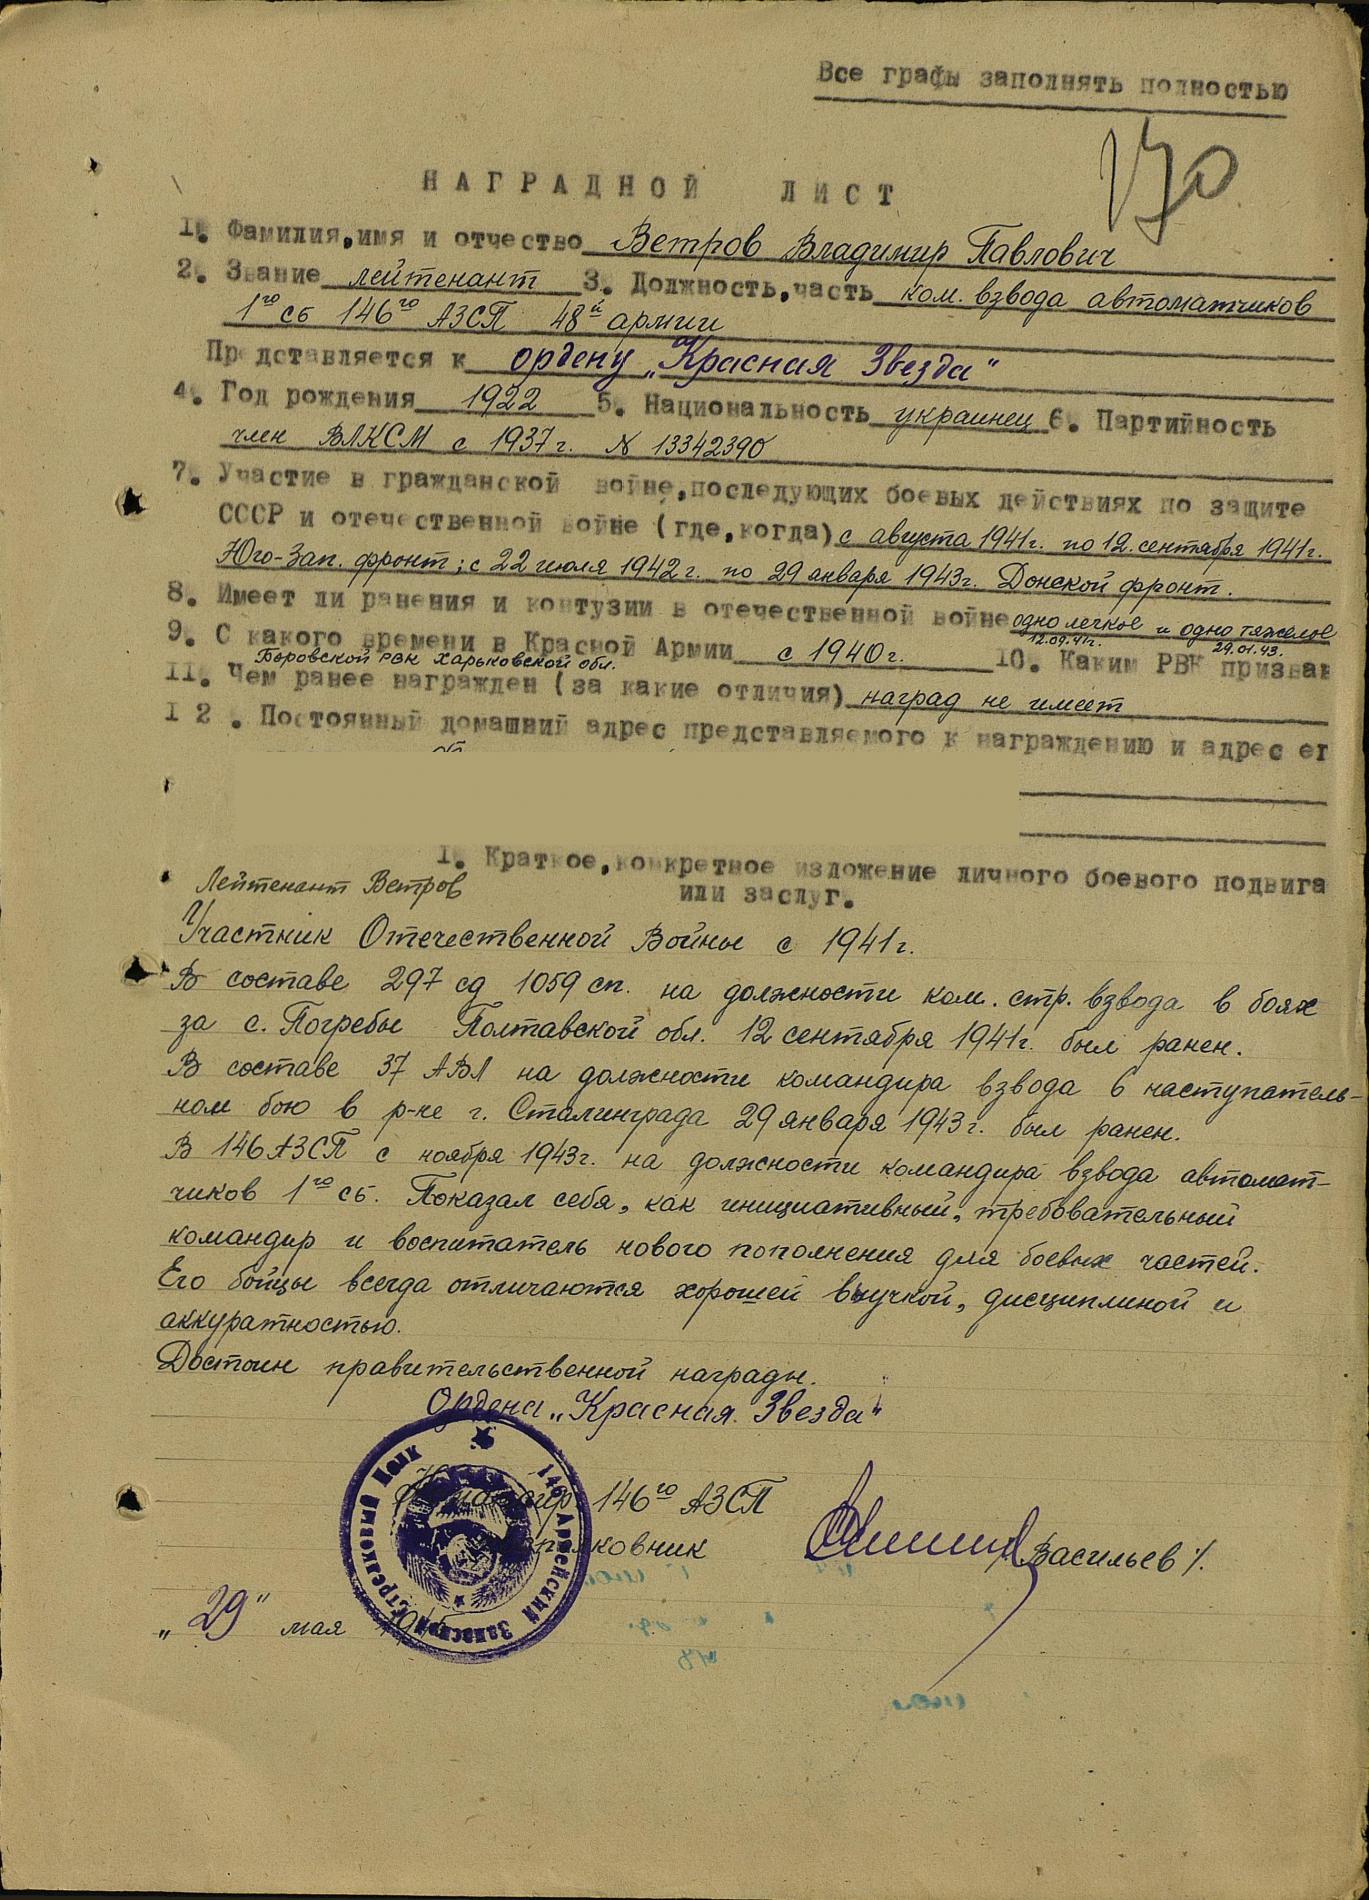 Все графы заполнять полностью
170
НАГРАДНОЙ ЛИСТ
1. Фамилия, имя и отчество Ветров Владимир Павлович
2. Звание лейтенант 3. Должность, часть ком. взвода автоматчиков
1го сб 146го АЗСП 48й армии
Представляется к ордену „Красная Звезда"
4. Год рождения 1922 5. Национальность украинец 6. Партийность
член ВЛКСМ с 1937 г. N 13342390
7. Участие в гражданской войне, последующих боевых действиях по защите
СССР и отечественной войне (где, когда) с августа 1941г. по 12.сентября 1941г.
Юго-Зап. фронт; с 22 июля 1942 г. по 29 января 1943г. Донской фронт.
8. Имеет ли ранения и контузии в отечественной войне одно легкое и одно тяжелое
12.09.41г. 29.01.43.
9. С какого времени в Красной Армии с 1940 г. 10. Каким РВК призван
Боровской РВК Харьковской обл.
11. Чем ранее награжден (за какие отличия) наград не имеет
12. Постоянный домашний адрес представляемого к награждению и адрес ег
1. Краткое, конкретное изложение личного боевого подвига
или заслуг.
Лейтенант Ветров
Участник Отечественной Войны с 1941 г.
В составе 297 сд 1059 сп. на должности ком. стр. взвода в боях
за с. Погребы Полтавской обл. 12 сентября 1941г. был ранен.
В составе 37 АВЛ на должности командира взвода в наступатель-
ном бою в р-не г. Сталинграда 29 января 1943 г. был ранен.
В 146 АЗСП с ноября 1943г. на должности командира взвода автомат-
чиков 1го сб. Показал себя, как инициативный, требовательный
командир и воспитатель нового пополнения для боевых частей.
Его бойцы всегда отличаются хорошей выучкой, дисциплиной и
аккуратностью.
Достоин правительственной награды.
Ордена „Красная Звезда"
Командир 146го АЗСП
полковник /Васильев/.
146 Армейский Запасный Стрелковый Полк
„29" мая 1945